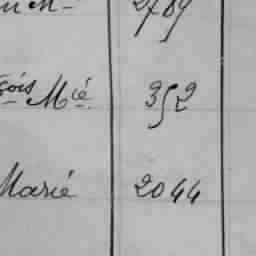 2789
çois Mié 352
Marié 2044